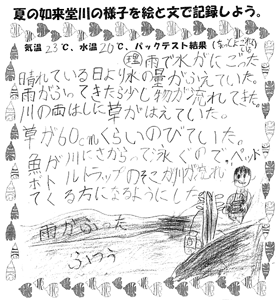 夏の如来堂川の様子を絵と文で記録しよう。
気温23℃、水温20℃、パックテスト結果
理雨で水がにごった
晴れている日より水の量がふえていた。
雨がふってきたら少し物が流れてきた
川の両はしに草がはえていた。
草が60cmくらいのびていた。
魚が川にさからって泳ぐので、ペット
ボトルトラップのそこが川が流れ
てくる方になるようにした。
雨がふった
ふつう